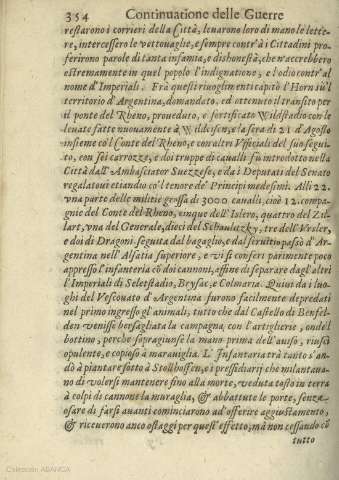 354 Continuatione delle Guerre
restarono i corrieri della Città, leuarono loro di mano le lette-
re, intercessero le vettouaglie, e sempre contr'à i Cittadini pro-
ferirono parole di tanta infamia, e dishonestà, che n'accrebbero
estremamente in quel popolo l'indignatione, e l'odio contr'al
nome d'Imperiali. Frà questi riuoglimenti capitò l'Horn sù'l
territorio d'Argentina, domandato, ed ottenuto il transito per
il ponte del Rheno, proueduto, e fortificato Wildstadio con le
leuate fatte nuouamente à Wildesen, e la sera di 21 d'Agosto
insieme co'l Conte del Rheno, e con altri Vfficiali del suo segui-
to, con sei carrozze, e doi truppe di caualli fù introdotto nella
Città dall'Ambasciator Suezzese, e da i Deputati del Senato
regalato ui etiandio co'l tenore de' Principi medesimi. Alli 22.
vna parte delle militie grossa di 3000 caualli, cioè 12. compa-
gnie del Conte del Rheno, cinque dell'Islero, quattro del Zil-
lart, vna del Generale, dieci del Schaulitzky, tre dell'Vrsler,
e doi di Dragoni seguita dal bagaglio, e dal seruitio passò d'Ar-
gentina nell'Alsatia superiore, e vi si conferì parimente poco
appresso l'infanteria cò doi cannoni, affine di separare dagl'altri
l'Imperiali di Selestadio, Brysac, e Colmaria. Quiui da i luo-
ghi del Vescouato d'Argentina furono facilmente depredati
nel primo ingresso gl'animali, tutto che dal Castello di Benfel-
den venisse bersagliata la campagna con l'artiglierie, onde'l
bottino, perche sopragiunse la mano prima dell'auiso, riuscì
opulente, e copioso à marauiglia. L'Infantaria trà tanto s'an-
dò à piantare sotto à Stollhoffen, e i pressidiarij che millantaua-
no di volersi mantenere fino alla morte, veduta tosto in terra
à colpi di cannone la muraglia, & abbattute le porte, senz'
osare di farsi auanti cominciarono ad'offerire aggiustamento,
& riceuerono anco ostaggi per quest'effetto, mà non cessando cò
tutto
Colección ABANCA